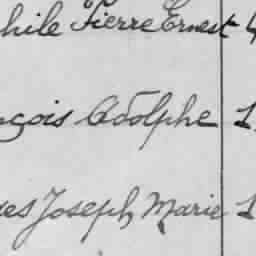 hile Pierre Ernest
çois Adolphe 1
es Joseph Marie 1